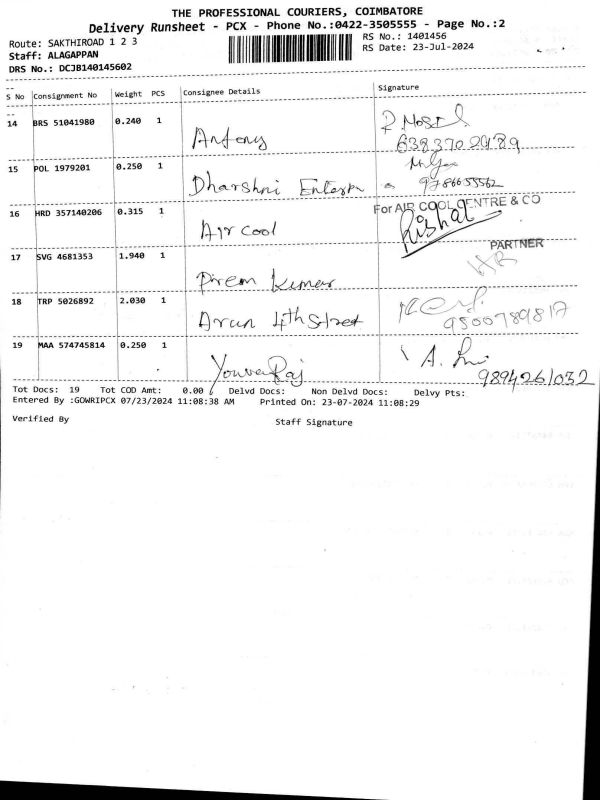 THE PROFESSIONAL COURIERS, COIMBATORE
Delivery Runsheet - PCX - Phone No.:0422-3505555 - Page No.:2
Route: SAKTHIROAD 1 2 3
RS No.: 1401456
Staff: ALAGAPPAN
RS Date: 23-Jul-2024
DRS No.: DCJB140145602
S No Consignment No Weight PCS Consignee Details Signature
14 BRS 51041980 0.240 1 Antony
15 POL 1979201 0.250 1 Dharshni 9786655562
16 HRD 357140206 0.315 1 Air cool For AIR COOL CENTRE & CO
PARTNER
17 SVG 4681353 1.940 1 Prem Kumar
18 TRP 5026892 2.030 1 Arun 4th Street 9500789817
19 MAA 574745814 0.250 1 YouvaRaj 9894261032
Tot Docs: 19 Tot COD Amt: 0.00 Delvd Docs: Non Delvd Docs: Delvy Pts:
Entered By :GOWRIPCX 07/23/2024 11:08:38 AM Printed On: 23-07-2024 11:08:29
Verified By Staff Signature